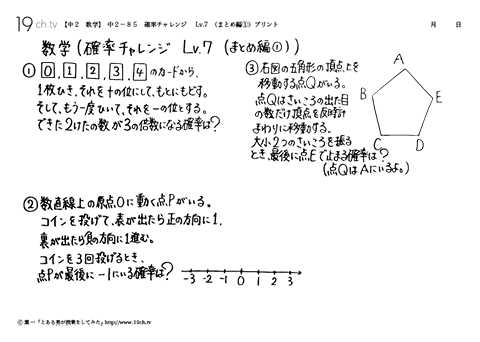 19ch.tv 【中2 数学】 中2-85 確率チャレンジ Lv.7 (まとめ編①) プリント 月 日
数学(確率チャレンジ Lv.7 (まとめ編①))
① 0, 1, 2, 3, 4 のカードから、
1枚ひき、それを十の位にして、もとにもどす。
そして、もう一度ひいて、それを一の位とする。
できた2けたの数が3の倍数になる確率は?
② 数直線上の原点Oに動く点Pがいる。
コインを投げて、表が出たら正の方向に1、
裏が出たら負の方向に1進む。
コインを3回投げるとき、
点Pが最後に-1にいる確率は?
-3 -2 -1 0 1 2 3
③ 右図の五角形の頂点上を
移動する点Qがいる。
点Qはさいころの出た目
の数だけ頂点を反時計
まわりに移動する。
大小2つのさいころを振る
とき、最後に点Eで止まる確率は?
(点QはAにいるよ。)
A
B
E
C
D
© 葉一「とある男が授業をしてみた」http://www.19ch.tv